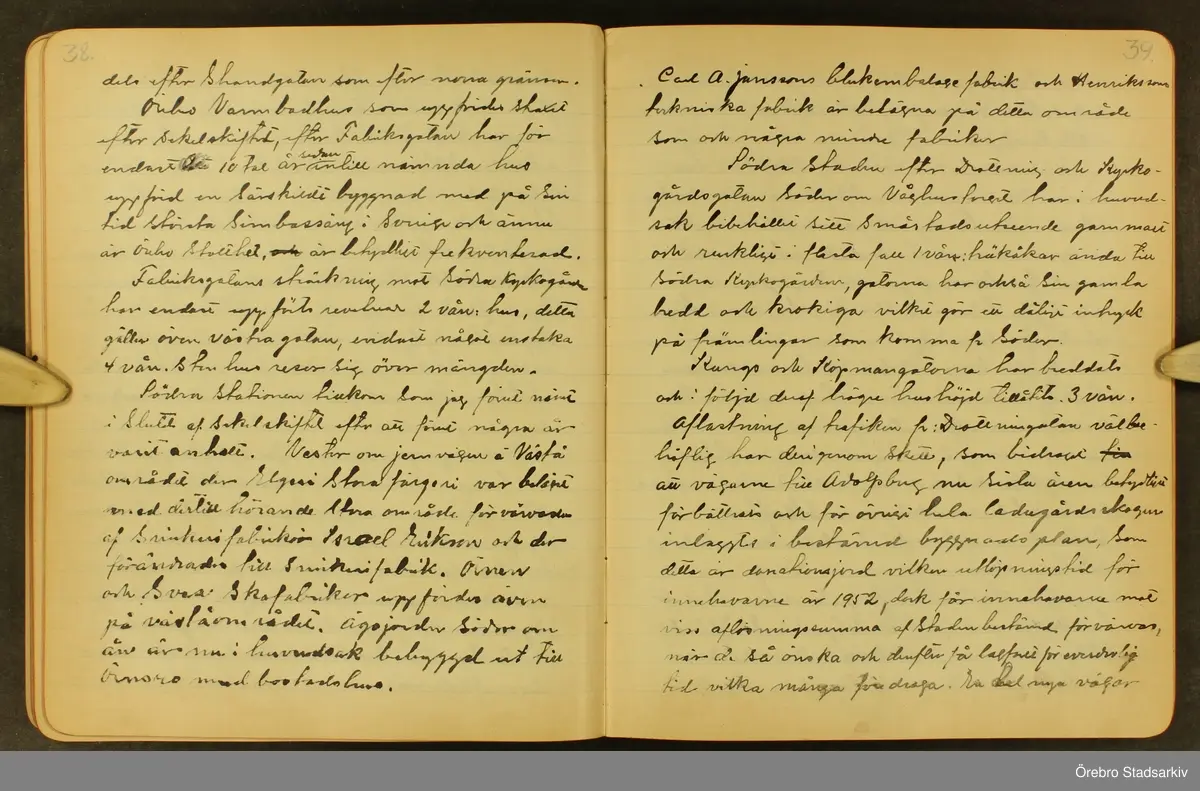 38.
dels efter Strandgatan som efter norra gränsen.
Örebro Varmbadhus som uppfördes straxt
efter sekelskiftet, efter Fabriksgatan har för
endast 10 tal år sedan intill nämnda hus
uppförd en särskildt byggnad med på sin
tid största Simbassäng i Sverige och ännu
är Örebro stolthet, och är betydligt frekventerad.
Fabriksgatans sträckning mot Södra Kyrkogården
har endast uppförts revelerade 2 vån: hus, detta
gäller även västra gatan, endast något enstaka
4 vån. Sten hus reser sig över mängden.
Södra Stationen tillkom som jag förut nämt
i Slutet af Sekelskiftet efter att förut några år
varit anhalt. Vester om jernvägen å Västå
området der Elgeri Stora färgeri var beläget
med dertill hörande stora område förvärvades
af Snickerifabrikör Israel Erikson och der
förändrades till Snickerifabrik. Örnen
och Svea Skofabriker uppfördes även
på västå området. Ägojorden Söder om
ån är nu i huvudsak bebyggd ut till
Örnsro med bostadshus.
39.
Carl A. Janssons blekemballage fabrik och Henrikssons
tekniska fabrik är belägna på detta område
som och några mindre fabriker
Södra Staden efter Drottning och Kyrko-
gårdsgatan Söder om Våghustorget har i huvud-
sak bibehållit sitt Småstadsutseende gammalt
och ruckligt i flesta fall 1 vån: träkåkar ända till
Södra Kyrkogården, gatorna har också sin gamla
bredd och krokiga vilket gör ett dåligt intryck
på främlingar som komma fr Söder.
Kungs och Köpmangatorna har breddats
och i följd deraf högre hushöjd tillåtits. 3 vån.
Aflastning af trafiken fr: Drottninggatan välbe-
höflig har derigenom skett, som bidraget till
att vägarne till Adolfsberg nu sista åren betydligt
förbättrats och för övrigt hela ladugårdsskogen
inlaggts i bestämd byggnads plan, Som
detta är donationsjord vilken utlöpningstid för
innehavarne är 1952, dock för innehavarne mot
viss aflösningssumma af Staden bestämd förvärvas,
när de så önska och derefter få lagfart för evärdelig
tid vilka många föredraga. En del nya vägar
Örebro Stadsarkiv